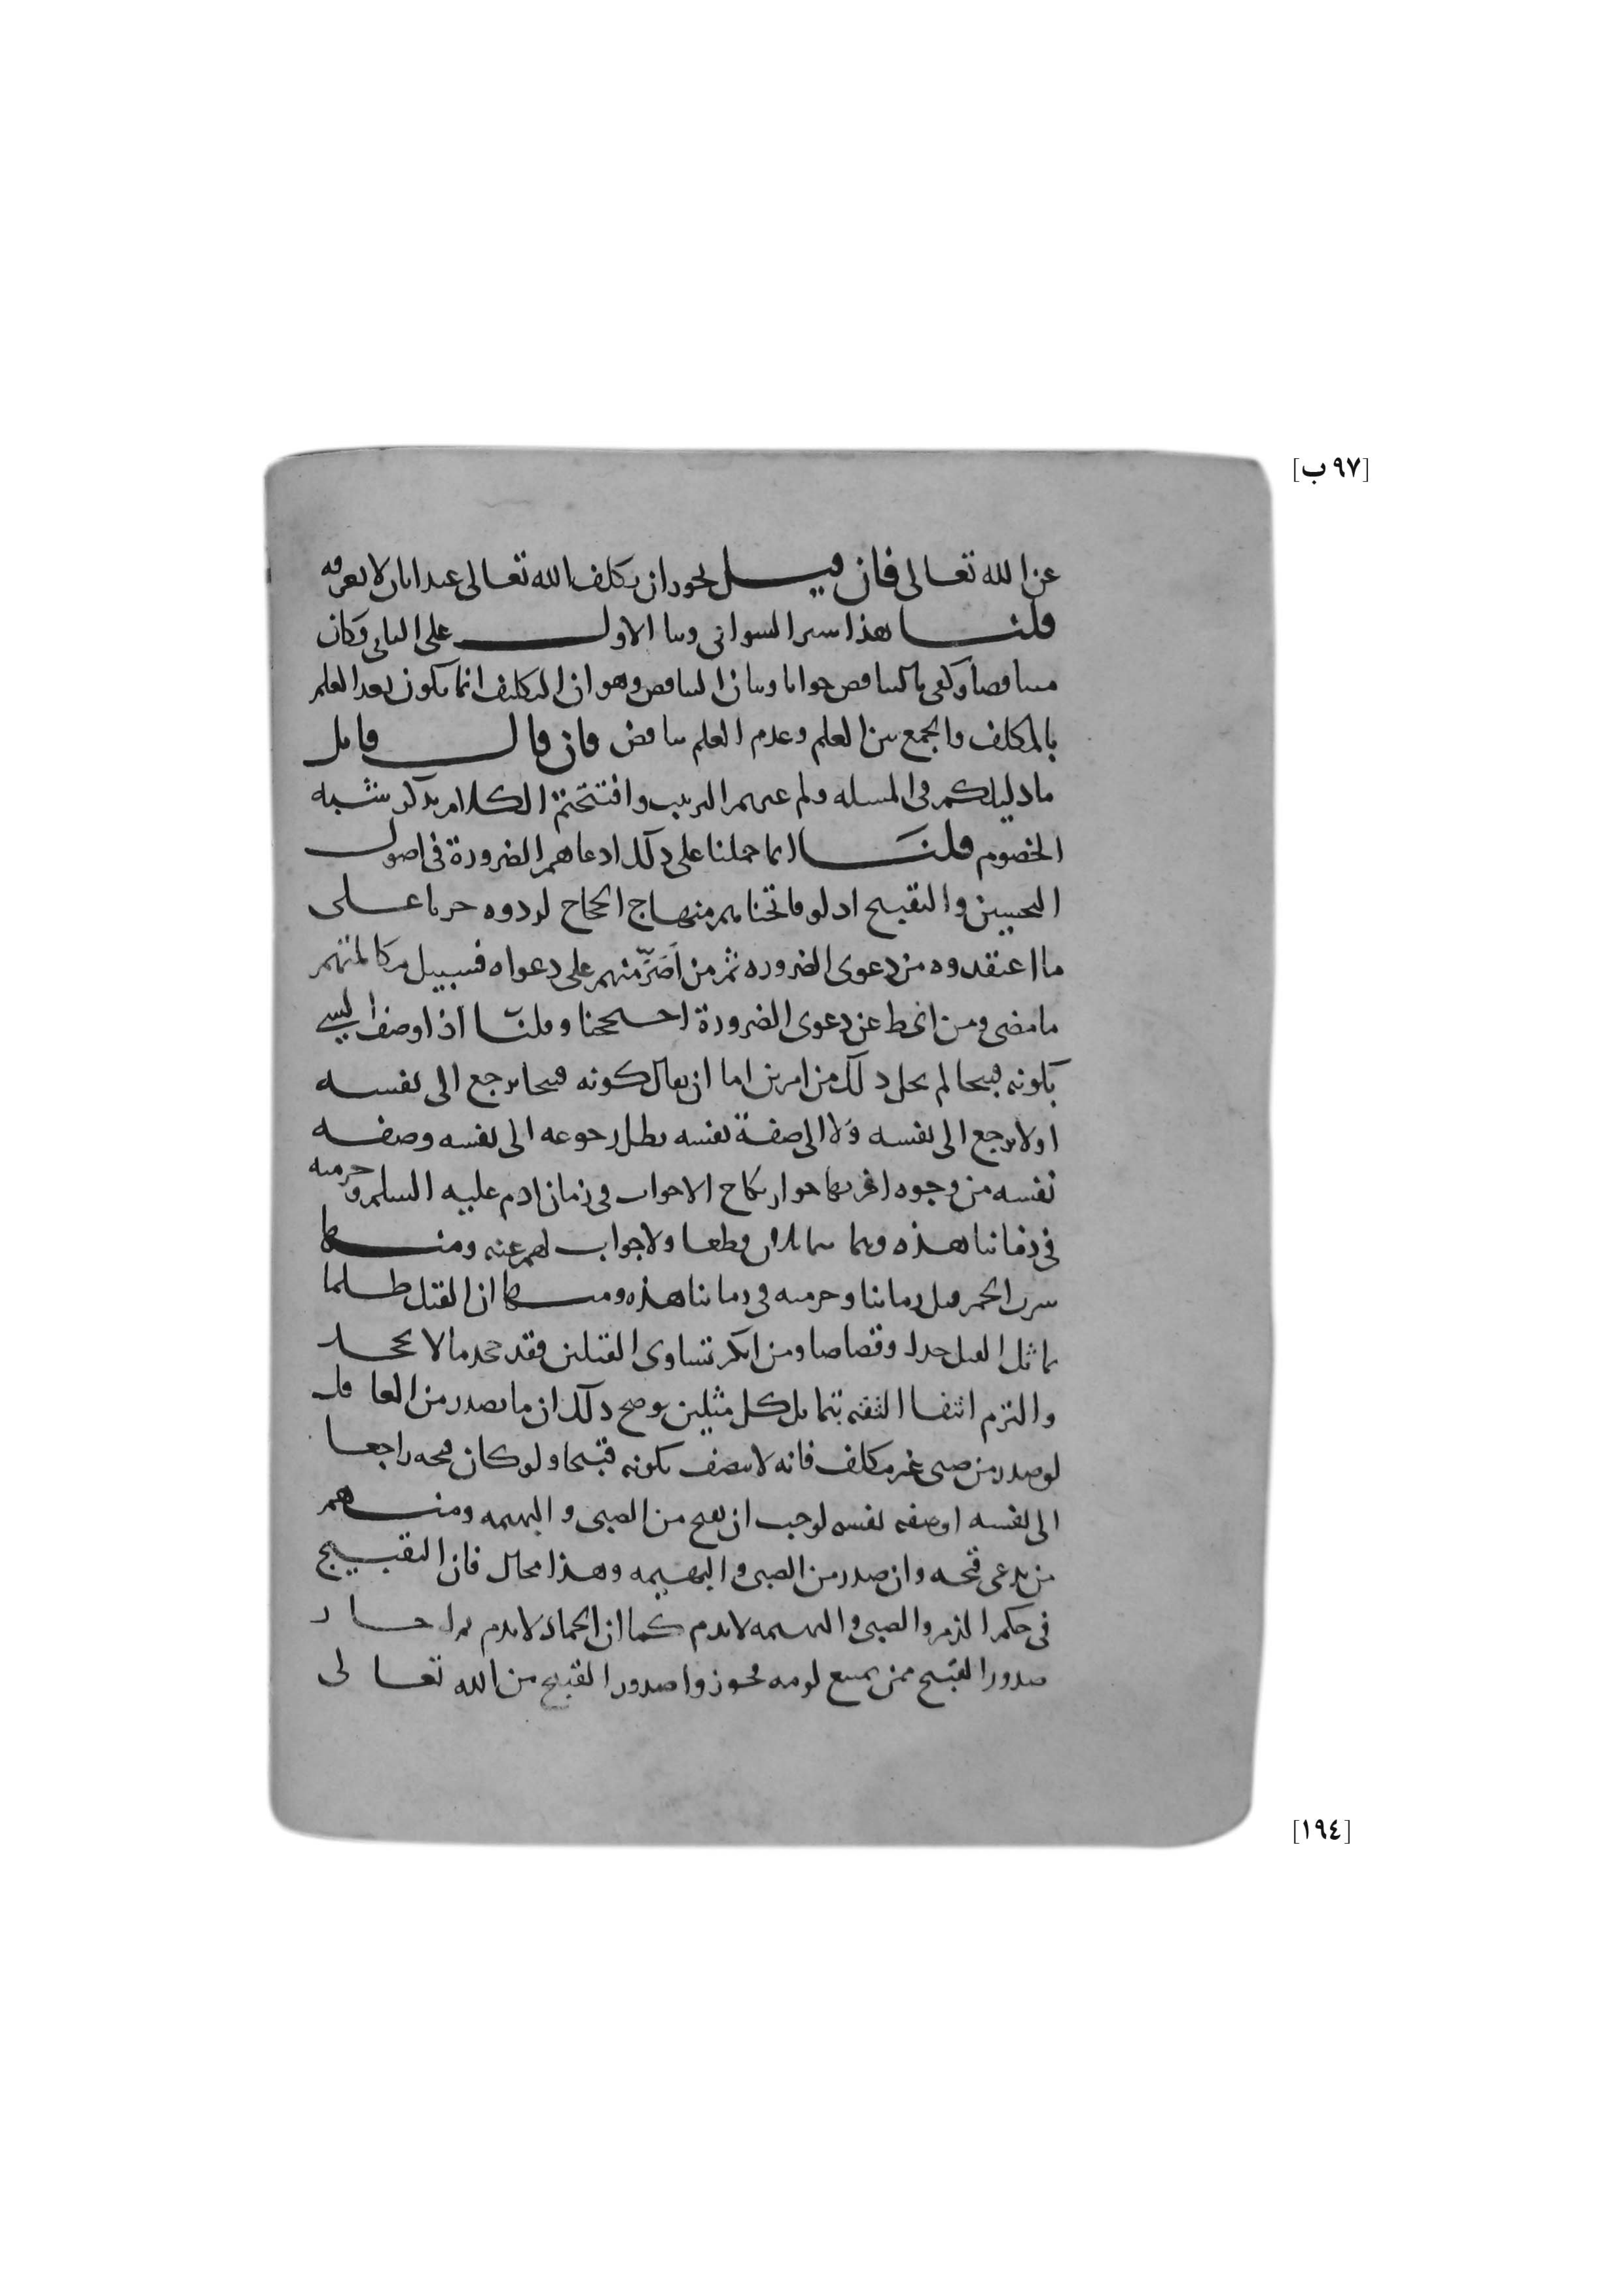 [٩٧ ب]
عن الله تعالى فان قيل يجوز ان يكلف الله تعالى عبدا بان لا يعرفه
قلنا هذا سر السواني وبنا الاول على الثاني وكان
متناقضا وكفى بالتناقض جوابا وبيان التناقض وهو ان التكليف انما يكون بعد العلم
بالمكلف والجمع بين العلم وعدم العلم تناقض فان قال قايل
ما دليلكم في المسله ولم غيرتم الترتيب وافتتحتم الكلام بذكر شبه
الخصوم قلنا انما حملنا على ذلك ادعاهم الضرورة في اصول
التحسين والتقبيح اذ لو فاتحناهم منهاج الحجاج لردوه جريا على
ما اعتقدوه من دعوى الضروره ثم من اصر منهم على دعواه فسبيل مكالمتهم
ما مضى ومن انحط عن دعوى الضرورة احتججنا وقلنا اذا وصف الشي
بكونه قبيحا لم يخل ذلك من امرين اما ان يقال كونه قبيحا يرجع الى نفسه
او لا يرجع الى نفسه ولا الى صفة نفسه بطل رجوعه الى نفسه وصفه
نفسه من وجوه اقربها جواز نكاح الاخوات في زمان ادم عليه السلم وحرمته
في زماننا هذه وهما متماثلان قطعا ولا جواب لهم عنه ومنها
شرب الخمر قبل زماننا وحرمته في زماننا هذه ومنها ان القتل ظلما
يماثل القتل حدا وقصاصا ومن انكر تساوى القتلين فقد جحد ما لا يجحد
والتزم انتفا الثقة بتماثل كل مثلين يوضح ذلك ان ما يصدر من العاقل
لو صدر من صبي غير مكلف فانه لا يتصف بكونه قبيحا ولو كان قبحه راجعا
الى نفسه او صفه نفسه لوجب ان يقبح من الصبي والبهيمه ومنهم
من يدعى قبحه وان صدر من الصبي والبهيمه وهذا محال فان التقبيح
في حكم الذم والصبي والبهيمه لا يذم كما ان الجماد لا يذم فان جاز
صدور القبيح ممن يمتنع لومه فجوزوا صدور القبيح من الله تعالى
[١٩٤]